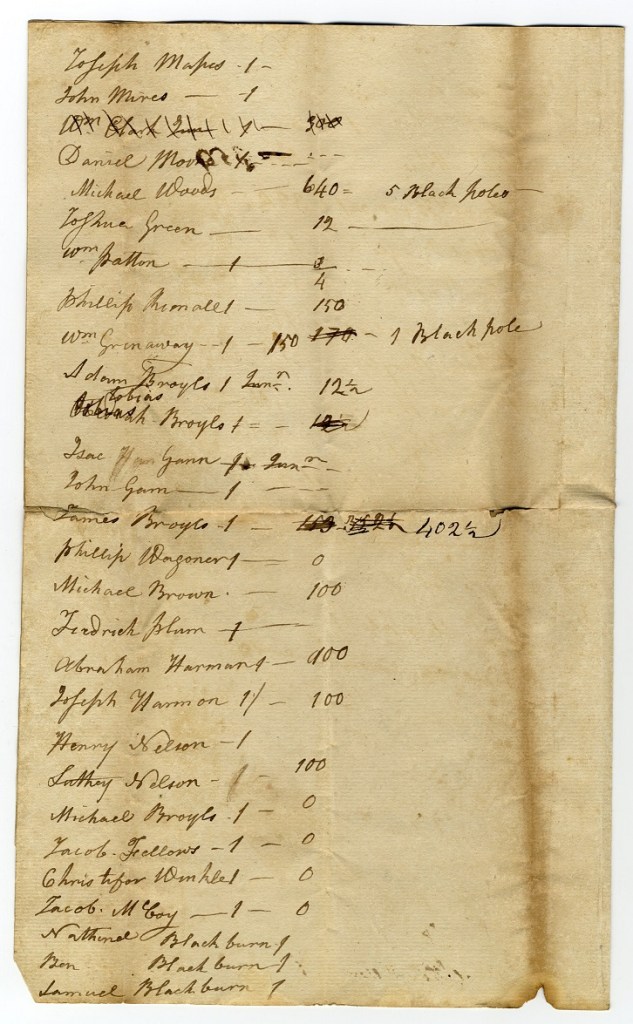 Joseph Mapes - 1 -
John Mires - 1
Wm
Daniel
Michael Woods - - 640 = 5 Black poles
Joshua Green - 12 -
Wm Patton - 1 - 3/4
Phillip 1 - 150
Wm Grinaway - 1 - 150 170 - 1 Black pole
Adam Broyls 1 Junr. 12½
Tobias
Broyls 1 = - 12½
Isac Gann 1 - Junr
John Gann - 1 -
James Broyls - 1 - 402½
Phillip Wagoner 1 - 0
Michael Brown. - 100
Fredrich Plum - 1 -
Abraham Harman 1 - 100
Joseph Harmon 1/ - 100
Henry Nelson - 1
Nelson - 1 100
Michael Broyls. 1 - 0
Jacob. Fellows - 1 - 0
Christifor Winkle 1 - 0
Jacob. McCoy - 1 - 0
Blackburn 1
Ben Blackburn 1
Samuel Blackburn 1